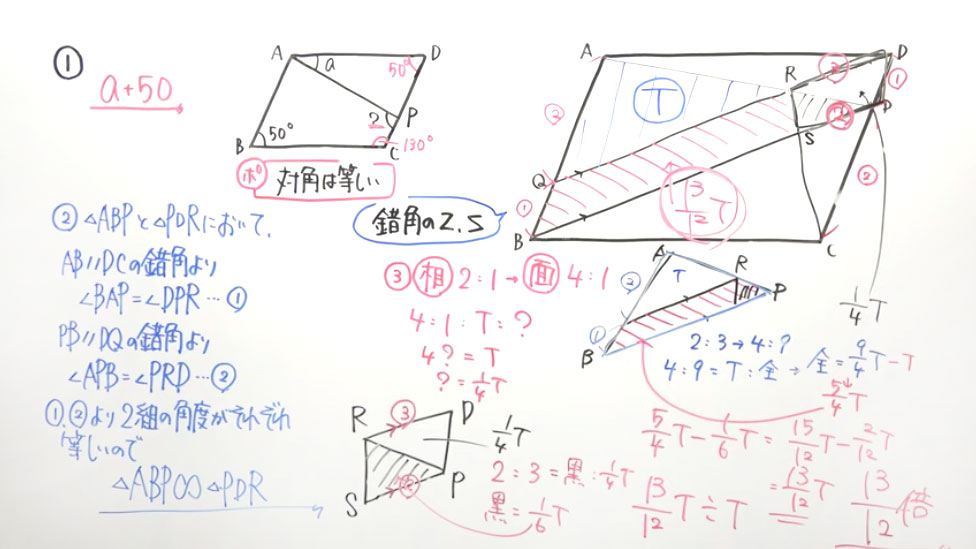 ①
a+50
A
D
a
50°
P
?
50°
B
C
130°
ポ 対角は等しい
② △ABPと△PDRにおいて、
AB//DCの錯角より
∠BAP=∠DPR…①
PB//DQの錯角より
∠APB=∠PRD…②
①,②より2組の角度がそれぞれ
等しいので
△ABP∽△PDR
A
D
R
③
①
T
②
P
②
S
Q
13/12 T
②
①
B
C
錯角のZ.S
1/4 T
③ 相 2:1→面 4:1
4:1:T:?
4?=T
?=1/4T
A
T
R
②
P
①
B
2:3→4:?
4:9=T:全→全=9/4T-T
5/4T
5/4T-1/6T=15/12T-2/12T
=13/12T
13/12T÷T
13/12倍
R
③
D
1/4T
S
②
P
2:3=黒:1/4T
黒=1/6T